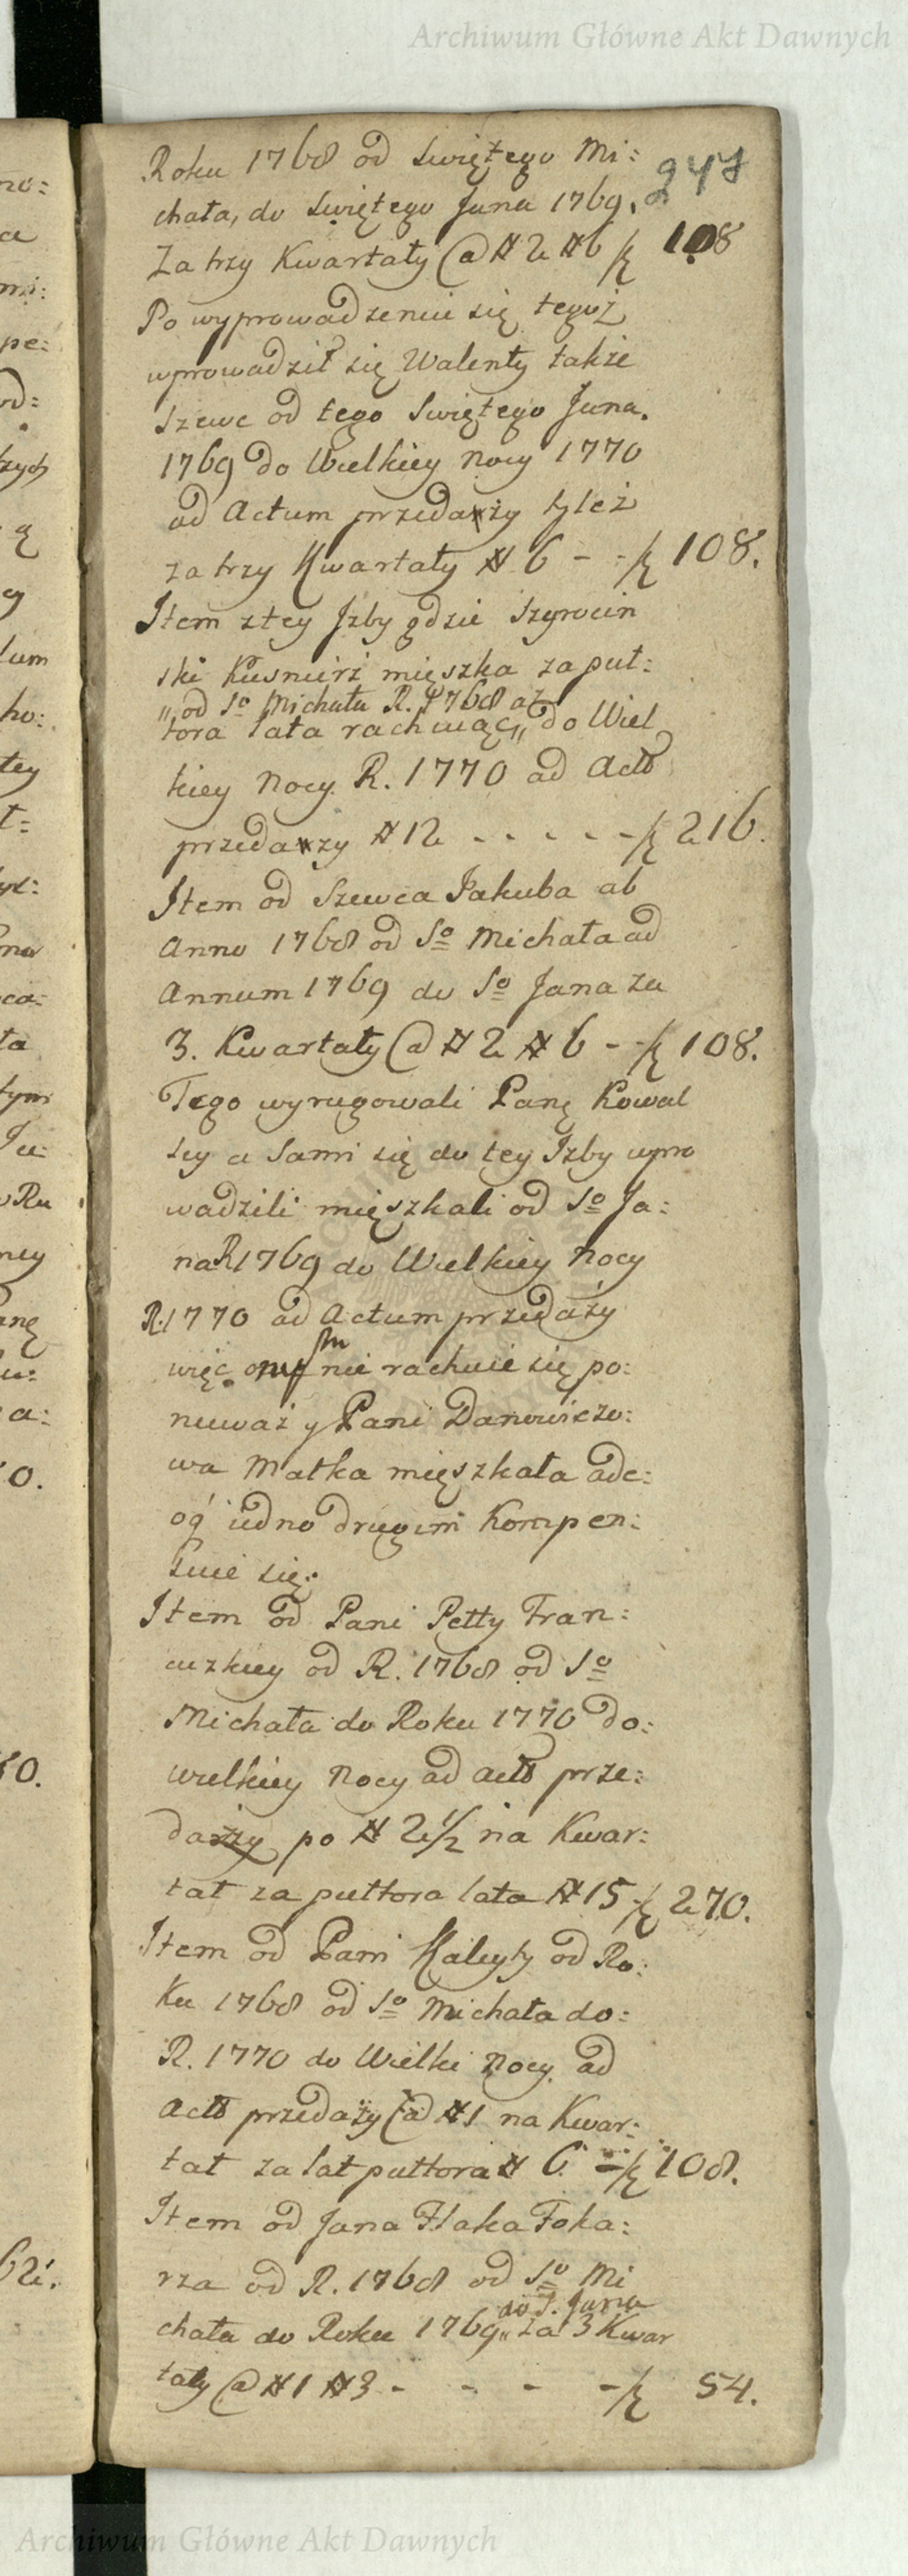 Archiwum Główne Akt Dawnych
247
Roku 1768 od Swiętego Mi:
chała, do Swiętego Jana 1769.
Za trzy Kwartały @ # 2 # 6 f 108
Po wyprowadzeniu się tegoż
wprowadził się Walenty także
Szewc od tego Swiętego Jana.
1769 do Wielkiey Nocy 1770
ad Actum przedaży tyleż
za trzy Kwartały # 6 - - f 108.
Item z tey Izby gdzie Szyrocin
ski Kusnierz mięszka za puł:
„od So Michała R. 1768 aż
tora lata rachuiąc„ do Wiel
kiey Nocy R. 1770 ad Actů
przedaży # 12 - - - - - f 216.
Item od Szewca Jakuba ab
Anno 1768 od So Michała ad
Annum 1769 do So Jana za
3. Kwartały @ # 2 # 6 - - f 108.
Tego wyrugowali Panę Kowal
scy a Sami się do tey Izby wpro
wadzili mięszkali od So Ja:
na R 1769 do Wielkiey Nocy
R. 1770 ad Actum przedaży
więc nie rachuie się po:
nieważ y Pani Danowiczo:
wa Matka mięszkała adc:
og iedno drugim Kompen:
suie się.
Item od Pani Petty Fran:
cuzkiey od R. 1768 od So
Michała do Roku 1770 do:
wielkiey Nocy ad actů prze:
daży po # 2 1/2 na Kwar:
tał za pułtora lata # 15 - f 270.
Item od Pani Kaleyty od Ro:
ku 1768 od So Michała do:
R. 1770 do Wielki Nocy ad
actů przedaży @ # 1 na Kwar:
tał za lat pułtora # 6 - f 108.
Item od Jana Flaka Toka:
rza od R. 1768 od So Mi
do S. Jana
chała do Roku 1769„ za 3 Kwar
tały @ # 1 # 3 - - - - f 54.
Archiwum Główne Akt Dawnych